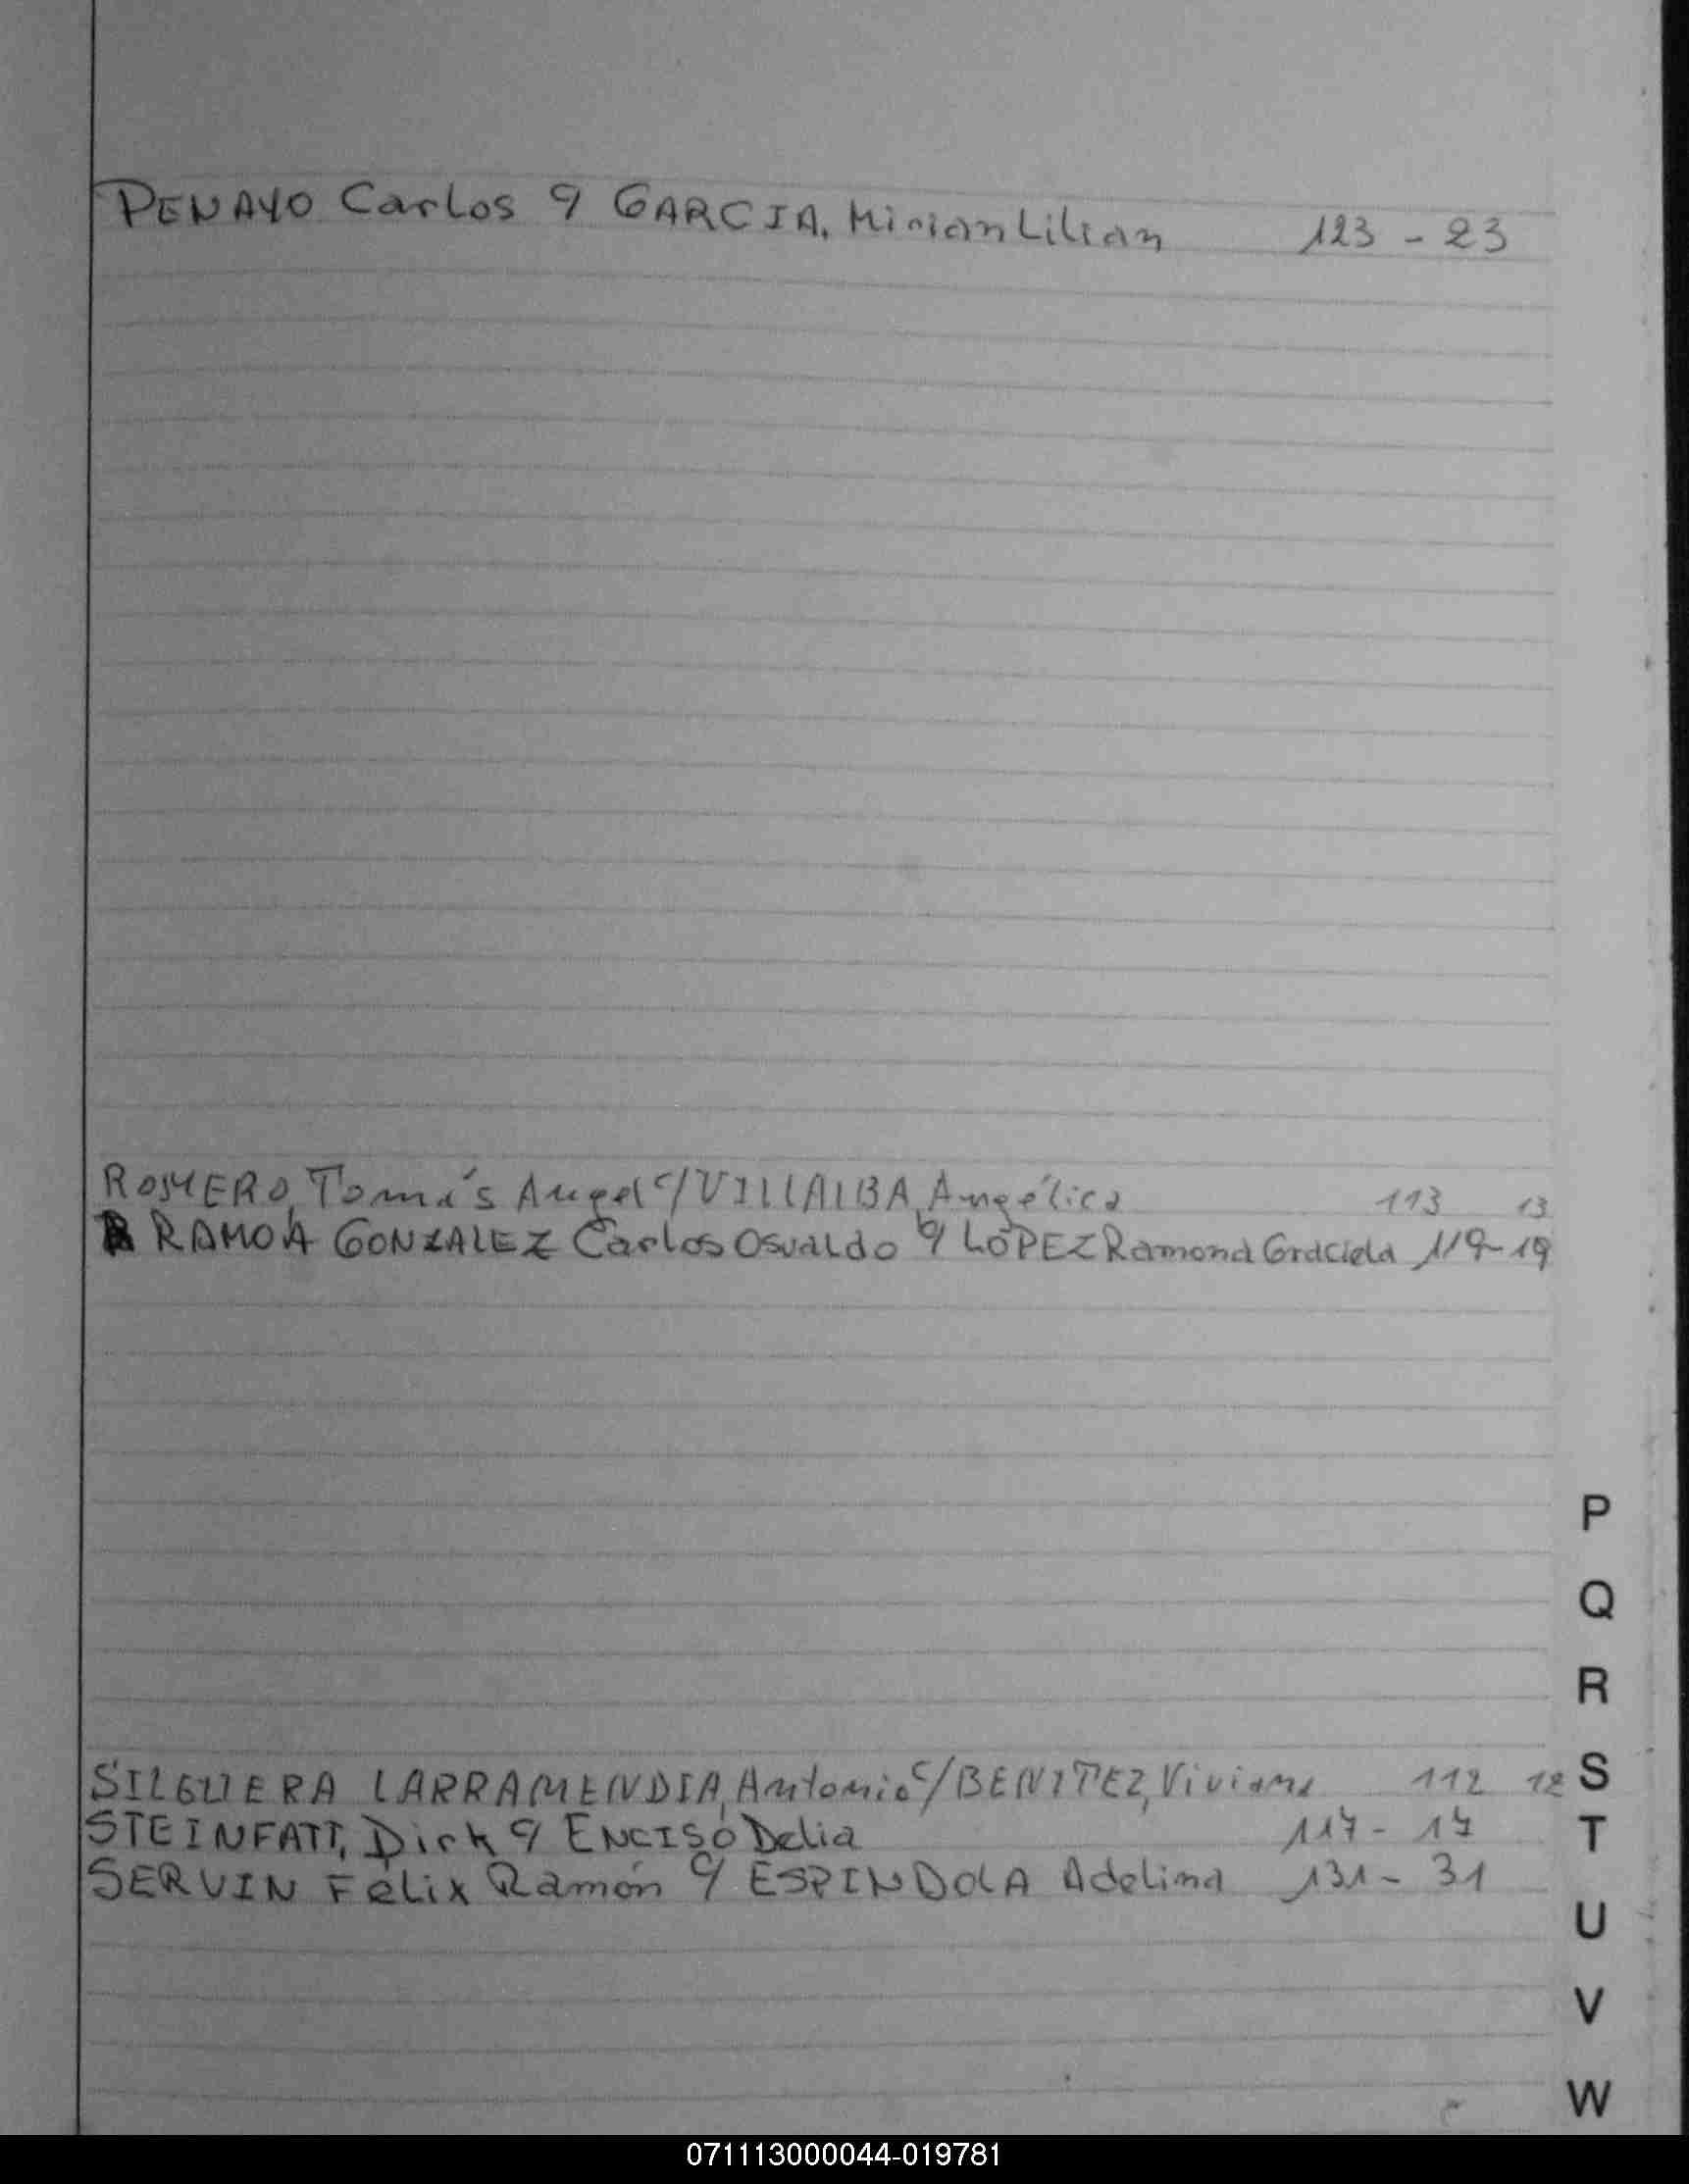 PENAYO Carlos c/ GARCIA, Mirian Lilian 123 - 23
ROMERO, Tomás Angel c/ VILLALBA, Angélica 113 13
RAMOA GONZALEZ Carlos Osvaldo c/ LOPEZ Ramona Graciela 119-19
P
Q
R
SILGUERA LARRAMENDIA, Antonio c/ BENITEZ, Viviana 112 12
S
STEINFATT, Dirk c/ ENCISO Delia 117 - 17
T
SERVIN Félix Ramón c/ ESPINDOLA Adelina 131 - 31
U
V
W
071113000044-019781